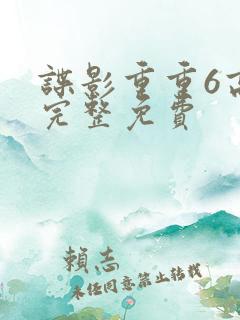 諜影重重6高
完整免費
賴志
未經同意禁止轉載